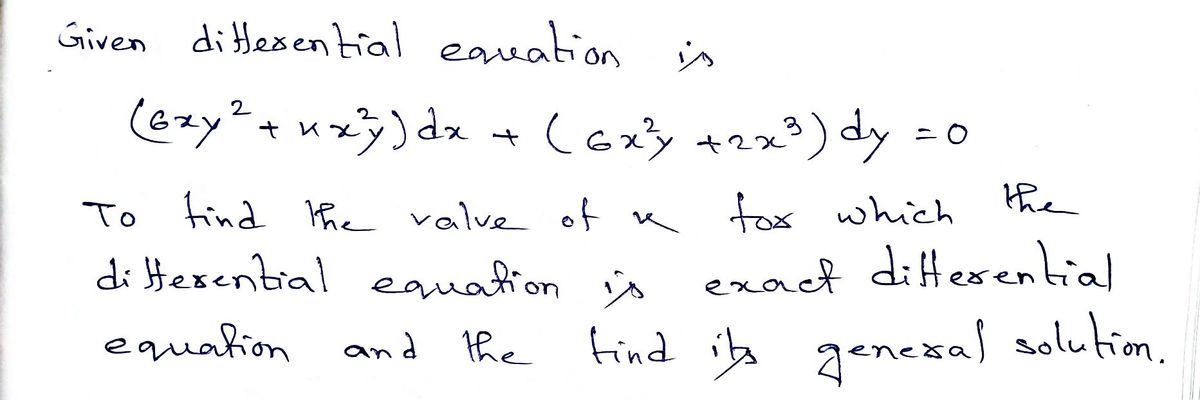 Given differential equation is
(6xy² + kx²y) dx + (6x²y + 2x³) dy = 0
To find the value of k for which the
differential equation is exact differential
equation and the find its general solution.